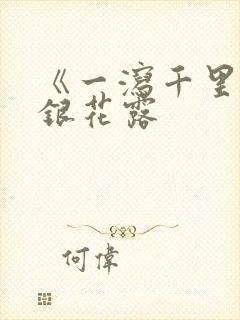 《一瀉千里
銀花露
何偉